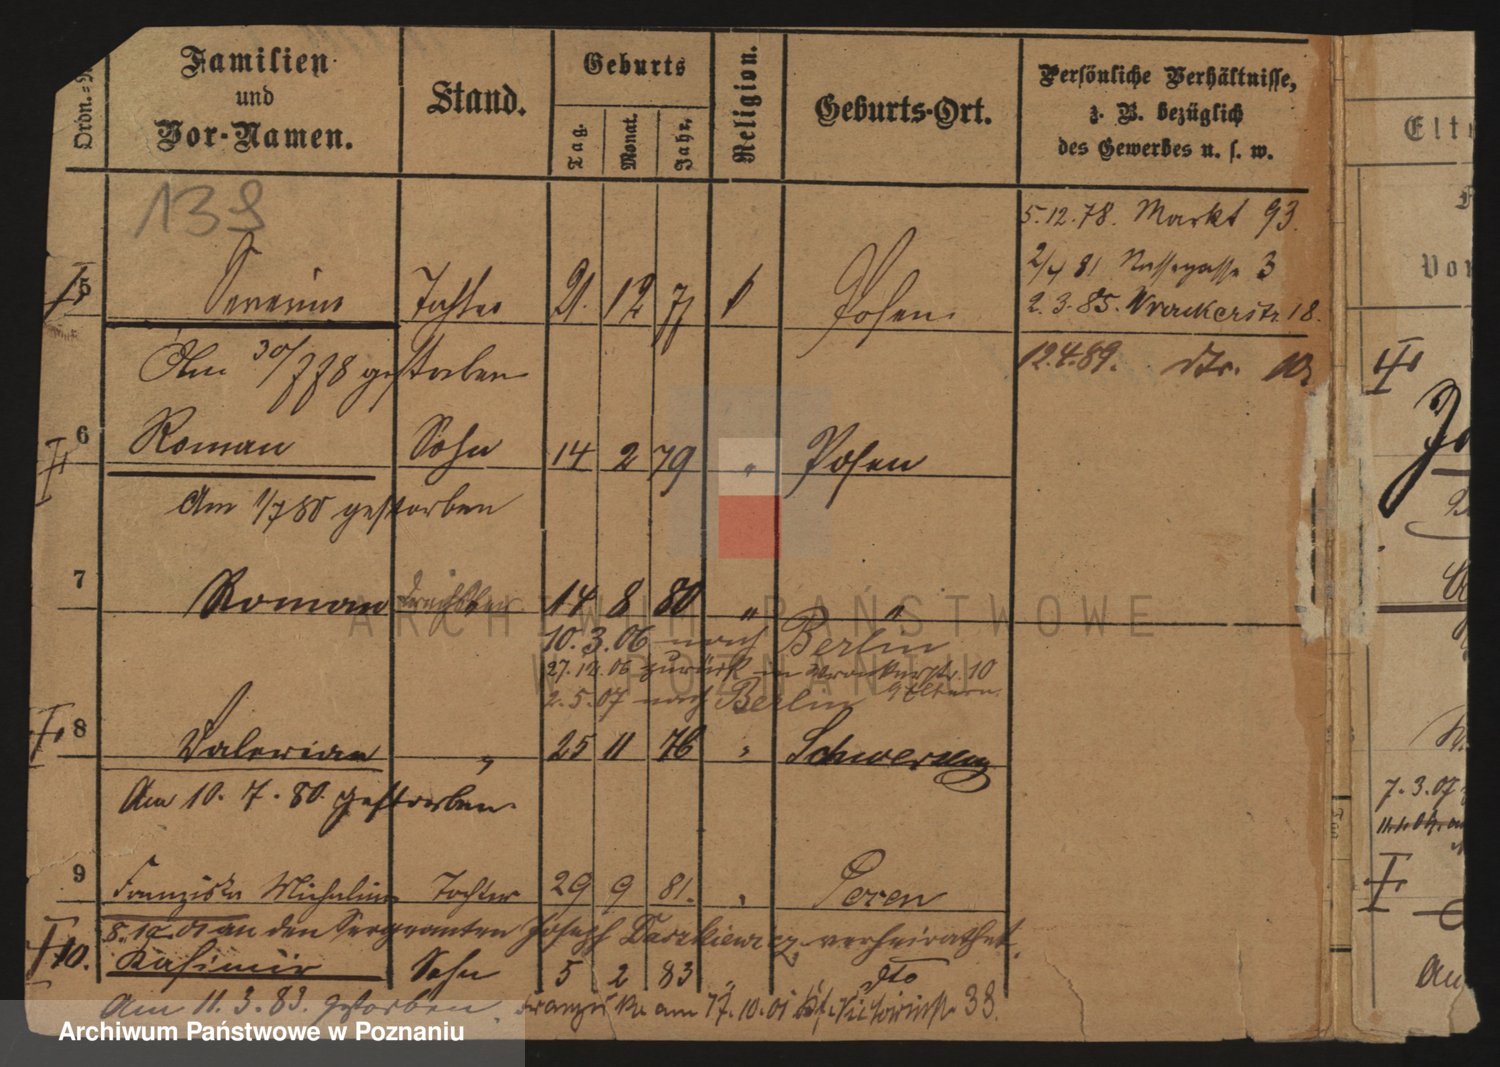 Ordn.=
Familien
und
Vor-Namen.
Stand.
Geburts
Tag.
Monat.
Jahr.
Religion.
Geburts-Ort.
Persönliche Verhältnisse,
z. B. bezüglich
des Gewerbes u. s. w.
139
5.12.78. Markt 93.
2/4 81 Nassegasse 3
2.3.85. Wronkerstr 18.
12.4.89. dto. 10
5 Severine Tochter 21. 12 77 Posen.
Am 30/7 78 gestorben
6 Roman Sohn 14 2 79 " Posen
Am 1/7 80 gestorben
7 Roman 14 8 80 " "
10.3.06 nach Berlin
27.12.06 zurück in Wronkerstr. 10
2.5.07 nach Berlin Eltern.
8 Valerian " 25 11 76 " Schwersenz
Am 10.7.80. gestorben.
9 Franziska Michalina Tochter 29 9 81. " Posen
an den Sergeanten Joseph verheirathet.
10. Kasimir Sohn 5 2 83 " dto
Am 11.3.83. gestorben.
Franziska am 17.10.01 38.
Elt
Vor
7.3.07
Am
ARCHIWUM PAŃSTWOWE
W POZNANIU
Archiwum Państwowe w Poznaniu